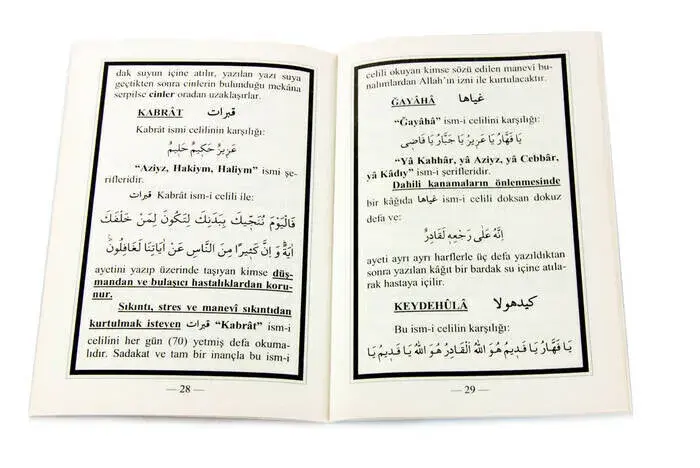 dak suyun içine atılır, yazılan yazı suya
geçtikten sonra cinlerin bulunduğu mekâna
serpilse cinler oradan uzaklaşırlar.
KABRÂT قبرات
Kabrât ismi celilinin karşılığı:
عَزِيزٌ حَكِيمٌ حَلِيمٌ
“Aziyz, Hakiym, Haliym” ismi şe-
rifleridir.
قبرات Kabrât ism-i celili ile:
فَالْيَوْمَ نُنَجِّيكَ بِبَدَنِكَ لِتَكُونَ لِمَنْ خَلْفَكَ
اٰيَةً وَ اِنَّ كَثِيرًا مِنَ النَّاسِ عَنْ اٰيَاتِنَا لَغَافِلُونَ
ayetini yazıp üzerinde taşıyan kimse düş-
mandan ve bulaşıcı hastalıklardan koru-
nur.
Sıkıntı, stres ve manevî sıkıntıdan
kurtulmak isteyen قبرات “Kabrât” ism-i
celilini her gün (70) yetmiş defa okuma-
lıdır. Sadakat ve tam bir inançla bu ism-i
— 28 —
celili okuyan kimse sözü edilen manevi bu-
nalımlardan Allah'ın izni ile kurtulacaktır.
ĞAYÂHÂ غياها
“Ğayâhâ” ism-i celilini karşılığı:
يَا قَهَّارُ يَا عَزِيزُ يَا جَبَّارُ يَا قَاضِى
“Yâ Kahhâr, yâ Aziyz, yâ Cebbâr,
yâ Kâdıy” ism-i şerifleridir.
Dahili kanamaların önlenmesinde
bir kâğıda غياها ism-i celili doksan dokuz
defa ve:
اِنَّهُ عَلٰى رَجْعِهِ لَقَادِرٌ
ayeti ayrı ayrı harflerle üç defa yazıldıktan
sonra yazılan kâğıt bir bardak su içine atıla-
rak hastaya içilir.
KEYDEHÛLÂ كيدهولا
Bu ism-i celilin karşılığı:
يَا قَهَّارُ يَا قَدِيمُ هُوَ اللّٰهُ الْقَادِرُ هُوَ اللّٰهُ يَا قَدِيمُ يَا
— 29 —